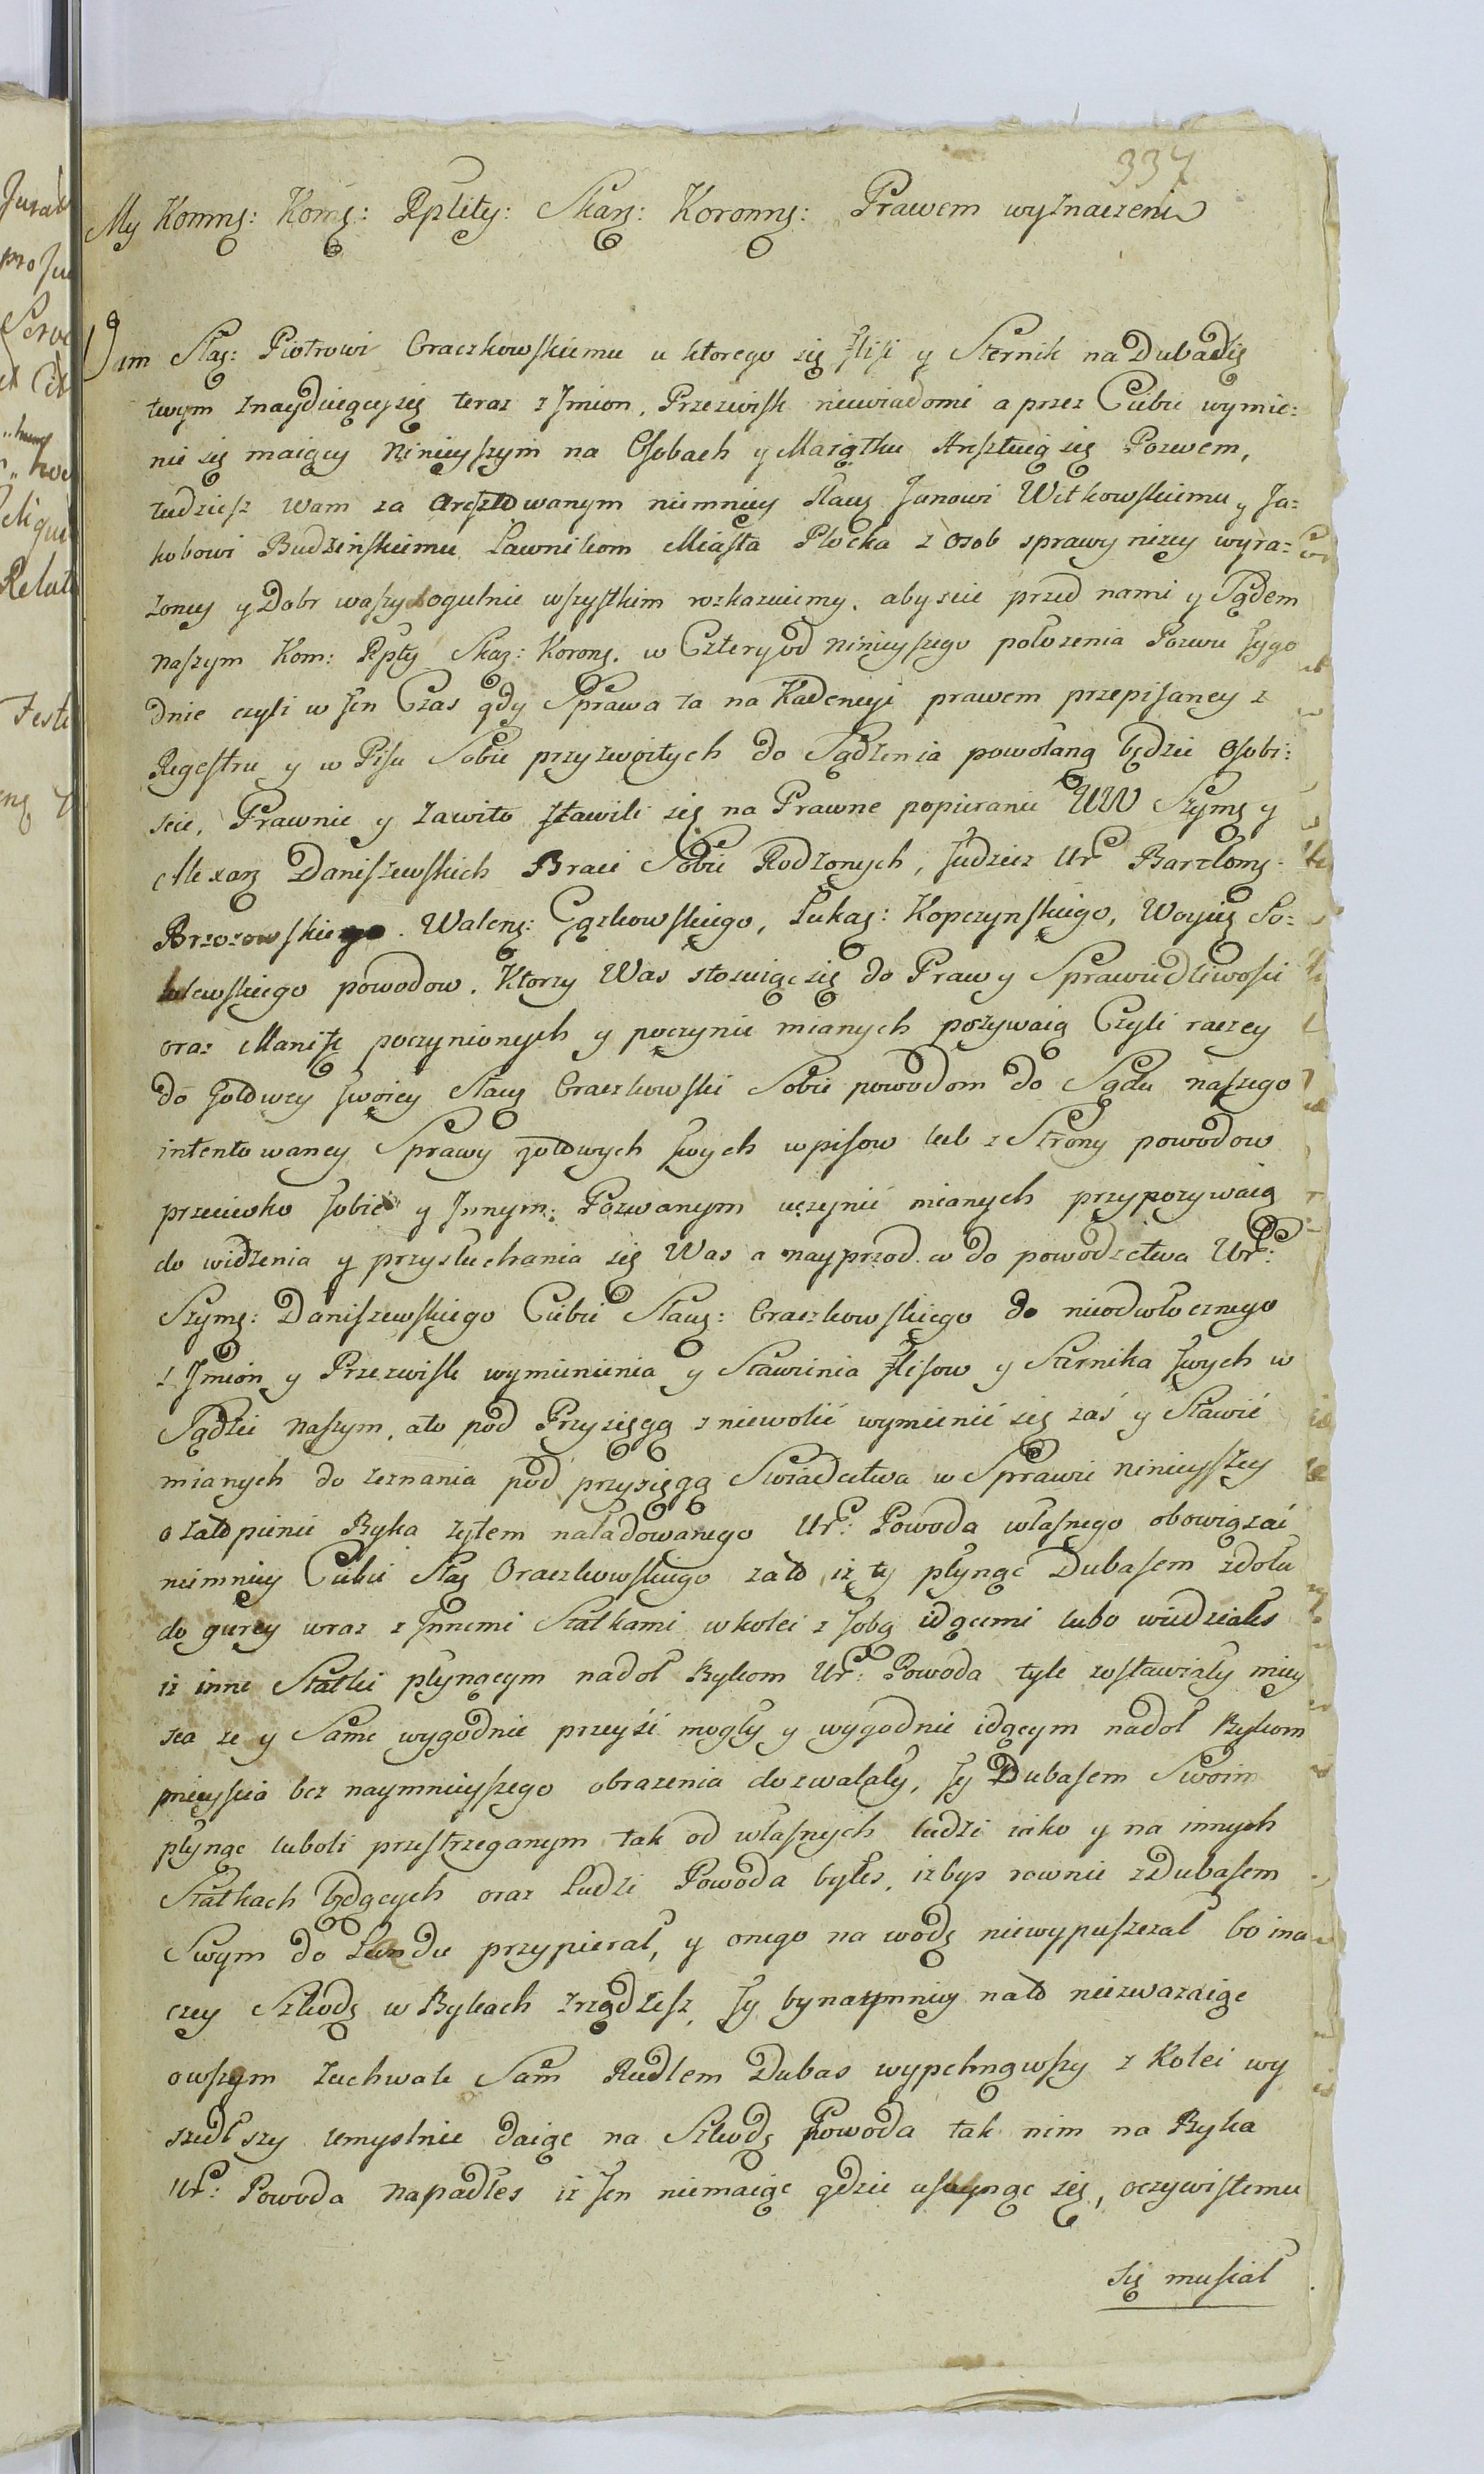 337
My Kommę: Komę: Rplity: Skarę: Koronnę: Prawem wyznaczeni
Wam Sław: Piotrowi Graczkowskiemu u ktorego się flisi y Sternik na Dubasie
twym znayduiącey się teraz z Jmion, Przezwisk niewiadomi a przez Ciebie wymie:
nić się maiący Ninieyszym na Osobach y Maiątku Aresztuią się Pozwem,
tudziesz Wam za aresztowanym niemniey Sławę Janowi Witkowskiemu y Ja:
kobowi Budzinskiemu Ławnikom Miasta Płocka z Osob sprawy niżey wyra:
żoney y Dobr waszych ogulnie wszystkim rozkazuiemy. abyscie przed nami y Sądem
naszym Kom: Rpty Skaę: Koronę. w Cztery od ninieyszego położenia Pozwu tygo
dnie czyli w ten Czas gdy Sprawa ta na Kadencyi prawem przepisaney z
Regestru y w Pisu Sobie przyzwoitych do Sądzenia powołaną będzie Osobi:
scie, Prawnie y zawito stawili się na Prawne popieranie UW Szymę y
Alexarę Daniszewskich Braci Sobie Rodzonych, tudziez Ur: Bartłomę:
Brzozowskiego. Walenę: Cązkowskiego, Łukaę: Kopczynskiego, Woycię So:
kolewskiego powodow. Ktorzy Was stosuiąc się do Praw y Sprawiedliwosci
oraz Manift poczynionych y poczynić mianych pozywaią Czyli raczey
do żołdwey swoiey Sławę Graczkowski Sobie powodom do Sądu naszego
intentowaney Sprawy zołdwych swych wpisow lub z Strony powodow
przeciwko sobie y Jnnym: Pozwanym uczynić mianych przypozywaią
do widzenia y przysłuchania się Was a nayprzod. w do powodztwa Ur:
Szymę: Daniszewskiego Ciebie Sławę: Graczkowskiego do nieodwłocznego
z Jmion y Przezwisk wymienienia y Stawienia flisow y Sternika swych w
Sądzie naszym, a to pod Przysięgą zniewolić wymienić się zaś y Stawić
mianych do zeznania pod przysięgą Swiadectwa w Sprawie ninieyszey
o zatopienie Byka żytem naładowanego Ur: Powoda własnego obowiązać
niemniey Ciebie Sław Graczkowskiego za to, iż ty płynąc Dubasem zdołu
do gury wraz z Jnnemi Statkami w kolei z sobą idącemi lubo wiedziałes
iż inne Statki płynącym nadoł Bykom Ur: Powoda tyle zostawiały miey
sca ze y Same wygodnie przeyść mogły y wygodnie idącym nadoł Bykom
przeyscia bez naymnieyszego obrazenia dozwalały, ty Dubasem Swoim
płynąc luboli przestrzeganym tak od własnych ludzi iako y na innych
Statkach będących oraz Ludzi Powoda byłes, izbys rownie z Dubasem
Swym do Lundu przypierał, y onego na wodę niewypuszczał bo ina
czey Szkodę w Bykach zrządzisz, ty bynaymniey na to niezwazaiąc
owszym zuchwale Sam Rudlem Dubas wypchnąwszy z Kolei wy
szedłszy umyslnie daiąc na Szkodę Powoda tak nim na Byka
Ur: Powoda napadłes iż ten niemaiąc gdzie usunąc się, oczywistemu
się musiał